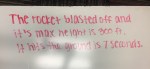 The rocket blasted off and
it's max height is 900 ft.
It hits the ground is 7 seconds.